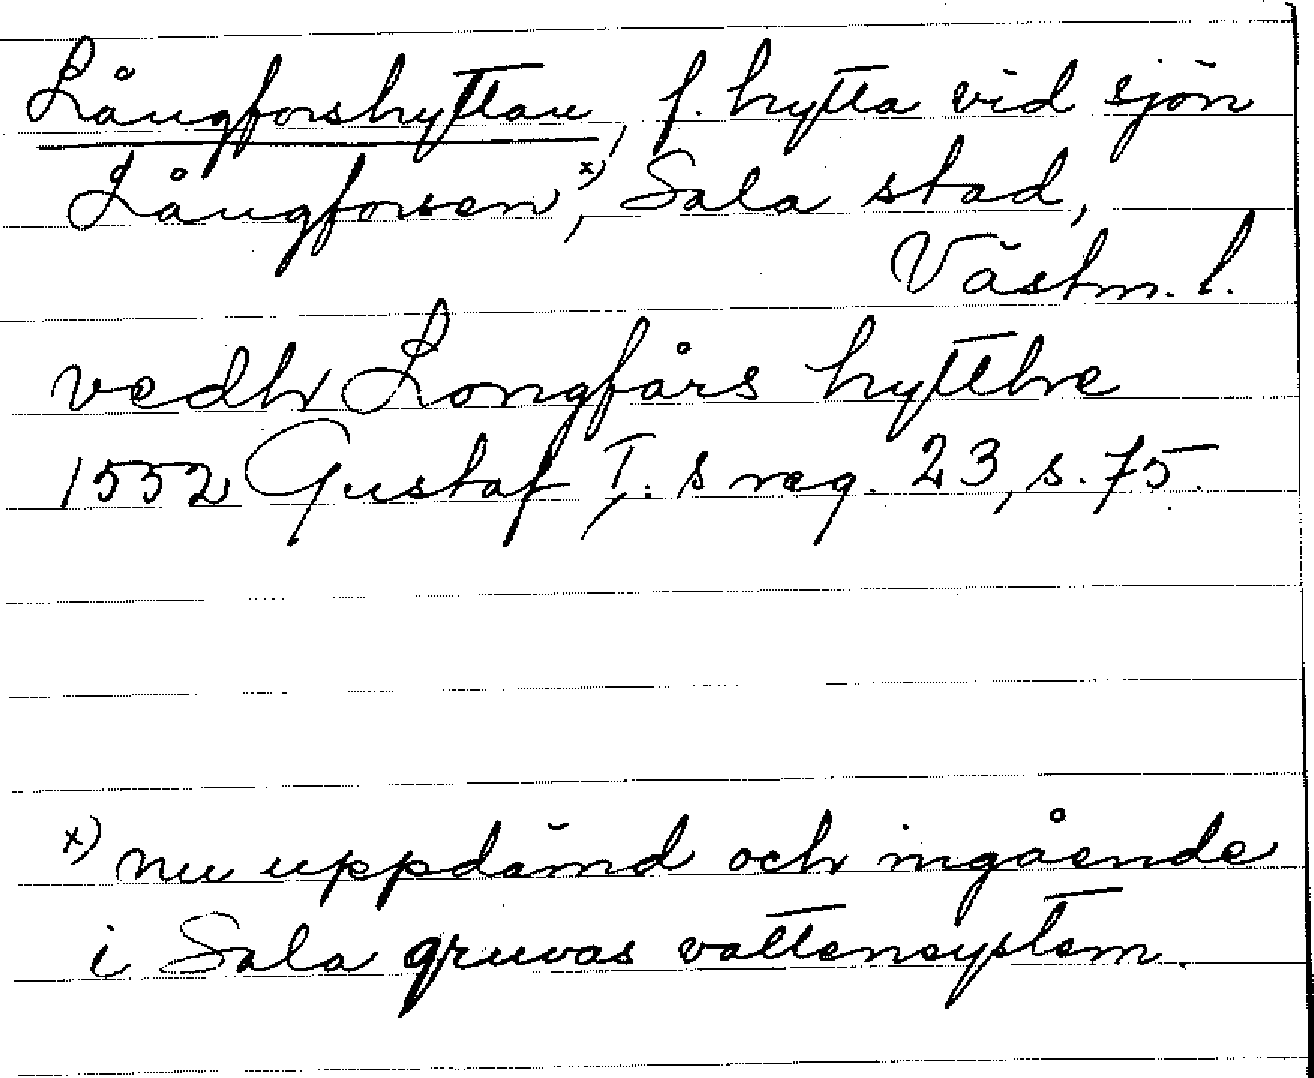 Långforshyttan, f. hytta vid sjön
Långforsen x), Sala stad,
Västm. l.
vedh Longfårs hytthe
1552 Gustaf I:s reg. 23, s. 75.
x) nu uppdämd och ingående
i Sala gruvas vattensystem.